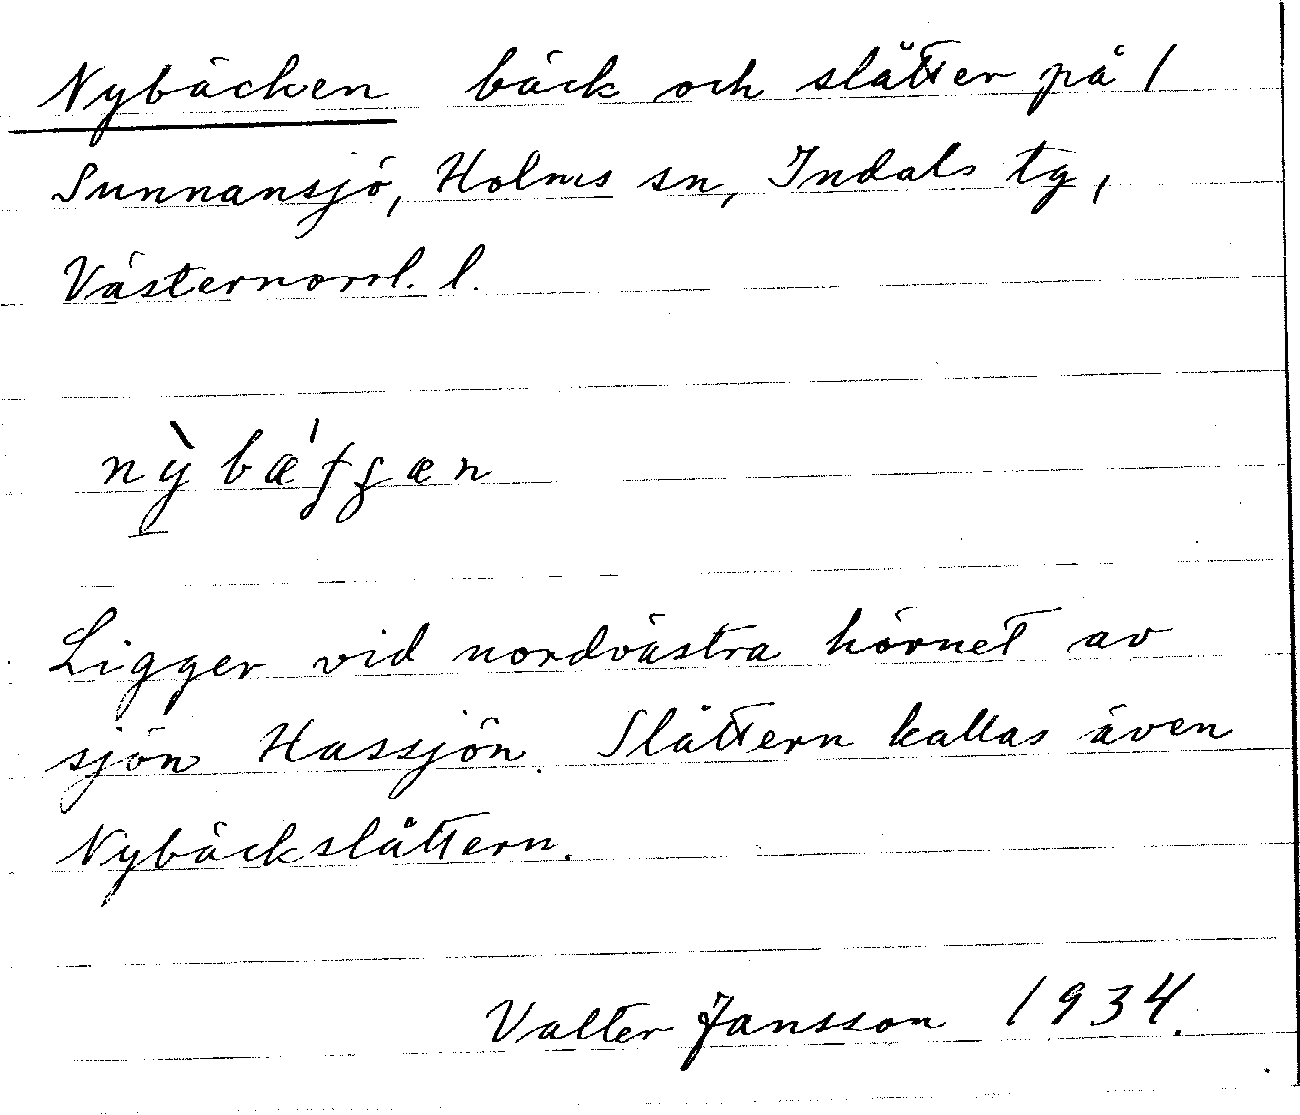 Nybäcken bäck och slåtter på 1
Sunnansjö, Holms sn, Indals tg,
Västernorrl. l.
Ligger vid nordvästra hörnet av
sjön Hassjön. Slåttern kallas även
Nybäckslåttern.
Valter Jansson 1934.